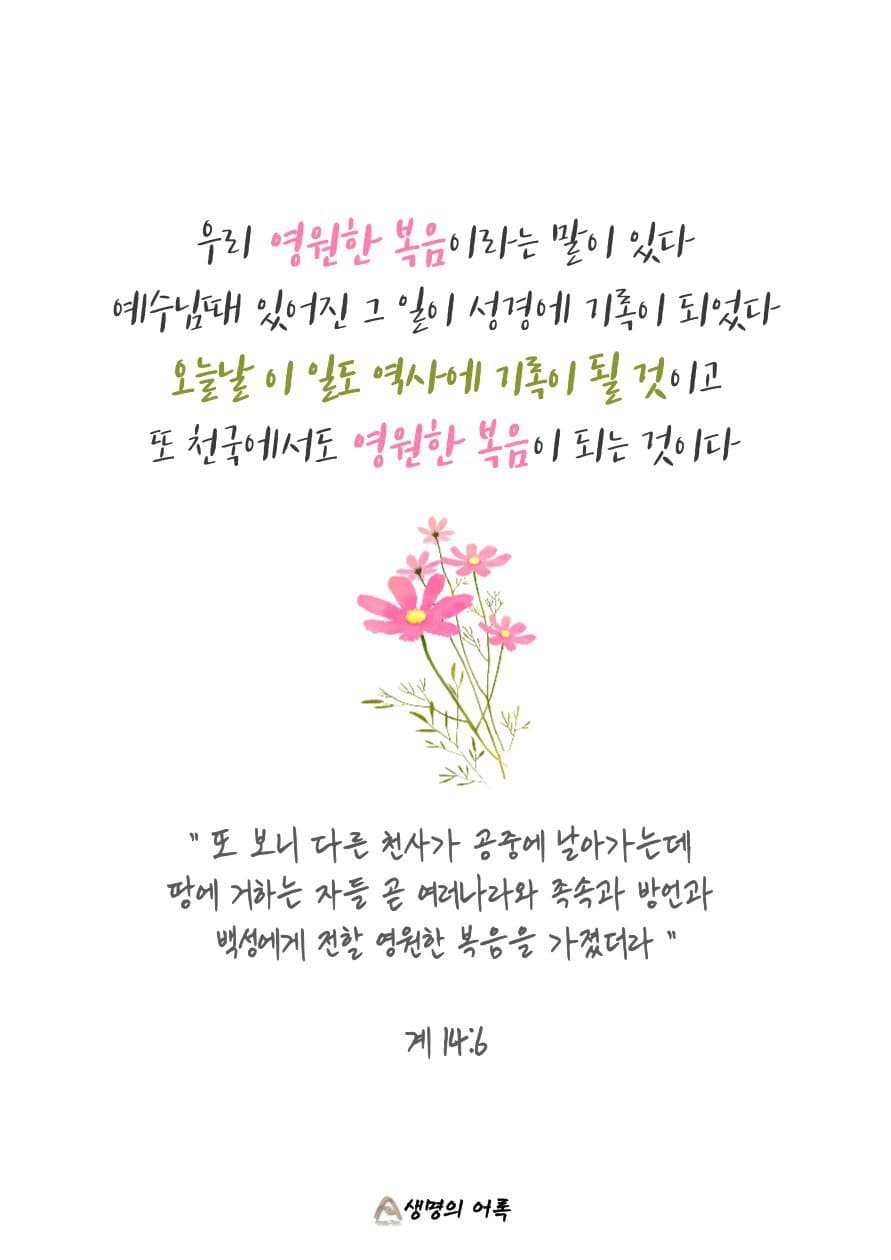 우리 영원한 복음이라는 말이 있다
예수님때 있어진 그 일이 성경에 기록이 되었다
오늘날 이 일도 역사에 기록이 될 것이고
또 천국에서도 영원한 복음이 되는 것이다
" 또 보니 다른 천사가 공중에 날아가는데
땅에 거하는 자들 곧 여러나라와 족속과 방언과
백성에게 전할 영원한 복음을 가졌더라 "
계 14:6
생명의 어록